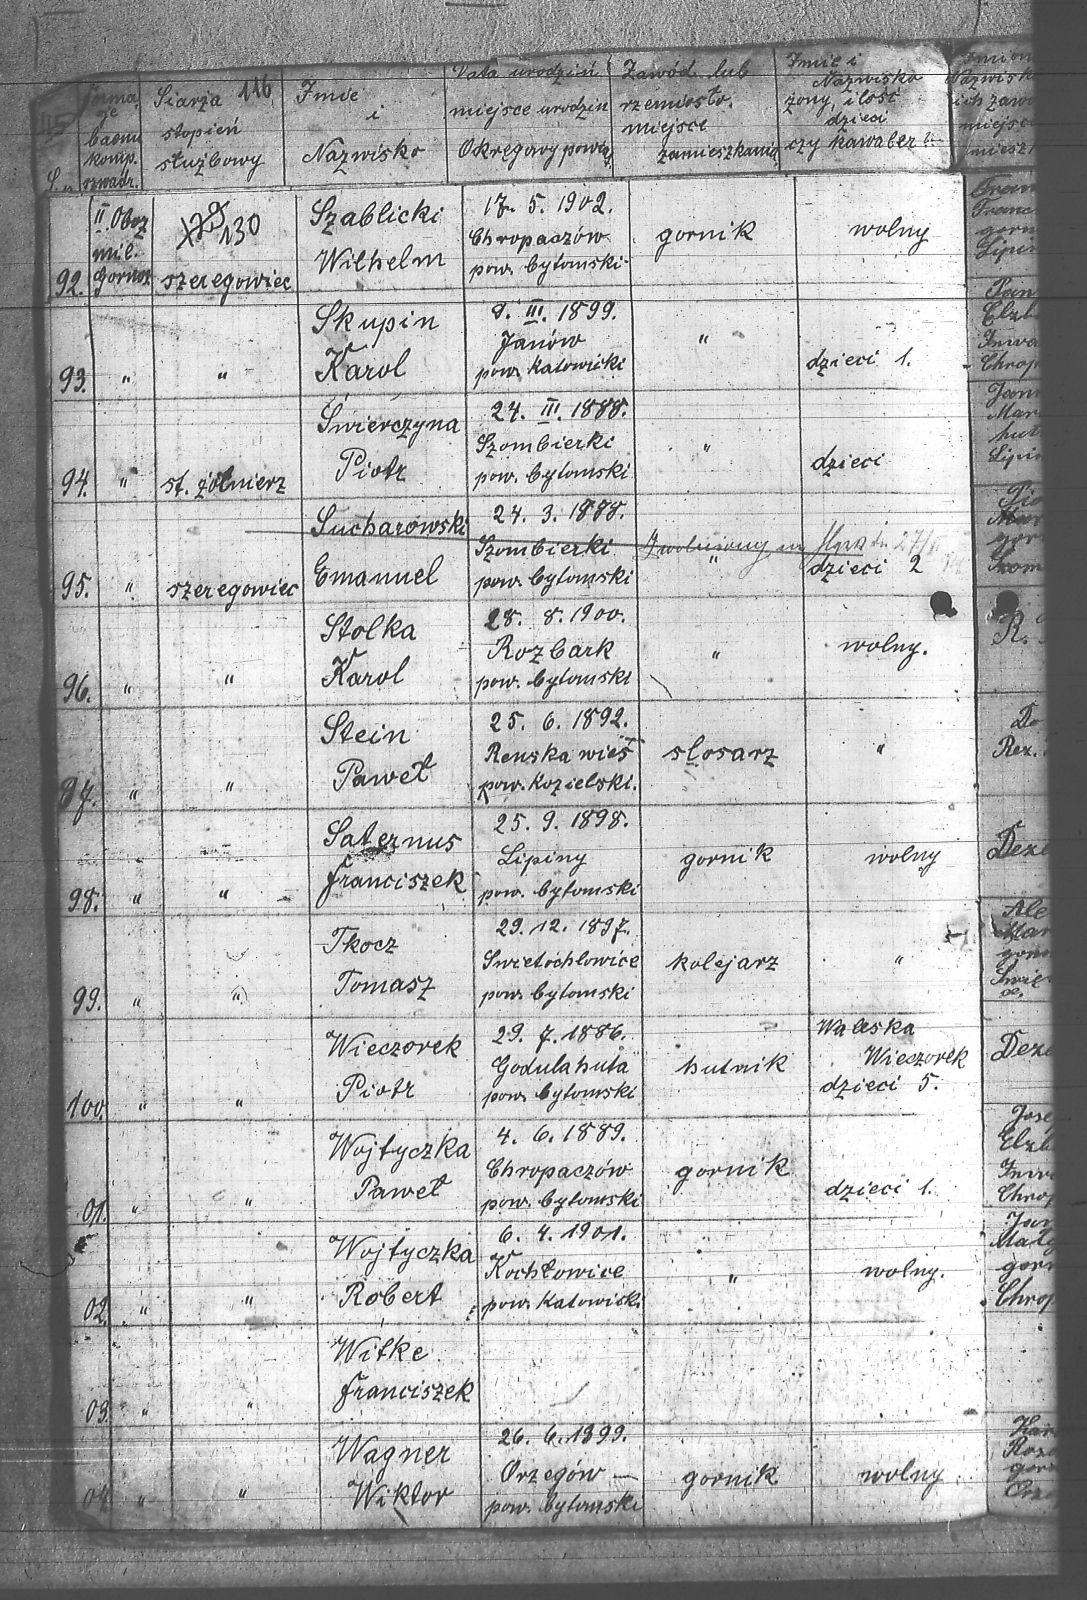 Forma
cje
baonu
komp.
szwadr.
L.p.
Szarża 116
stopień
służbowy
Imie
i
Nazwisko
Data urodzin
miejsce urodzin
Okręgowy powiat
Zawód lub
rzemiosło.
miejsce
zamieszkania
Imie i
Nazwisko
żony, ilość
dzieci
czy kawaler
92. II Oboz
mil.
130
szeregowiec
Szablicki
Wilhelm
17. 5. 1902.
Chropaczów
pow. bytomski
gornik
wolny
93. " "
Skupin
Karol
9. III. 1899.
Janów
pow. Katowicki
"
dzieci 1.
94. " st. żołnierz
Swierczyna
Piotr
24. III. 1888.
Szombierki
pow. bytomski
"
dzieci
95. " szeregowiec
Sucharowski
Emanuel
24. 3. 1888.
Szombierki
pow. bytomski
"
dzieci 2
96. " "
Stolka
Karol
28. 8. 1900.
Rozbark
pow. bytomski
"
wolny.
97. " "
Stein
Paweł
25. 6. 1892.
Renska wieś
pow. Kozielski.
slosarz
"
98. " "
Saternus
Franciszek
25. 9. 1898.
Lipiny
pow. bytomski
gornik
wolny
99. " "
Tkocz
Tomasz
29. 12. 1897.
Swietochlowice
pow. bytomski
kolejarz
"
100. " "
Wieczorek
Piotr
29. 7. 1886.
Godulahuta
pow. bytomski
hutnik
Waleska
Wieczorek
dzieci 5.
01. " "
Wojtyczka
Paweł
4. 6. 1889.
Chropaczów
pow. bytomski
gornik
dzieci 1.
02. " "
Wojtyczka
Robert
6. 4. 1901.
Kochłowice
pow. Katowicki
"
wolny.
03. " "
Witke
Franciszek
04. " "
Wagner
Wiktor
26. 6. 1899.
Orzegów —
pow. bytomski
gornik
wolny